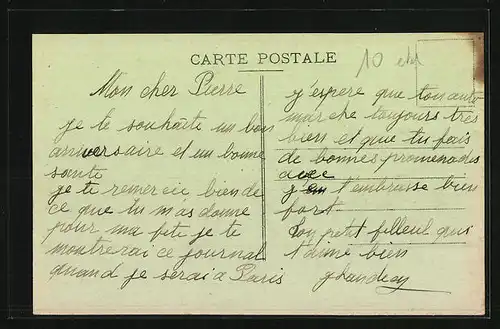 CARTE POSTALE
10
Mon cher Pierre
je te souhaite un bon
anniversaire et un bonne
sante
je te remercie bien de
ce que tu m'as donne
pour ma fete je te
montrerai ce journal
quand je serai a Paris
j'espere que ton auto
marche toujours tres
bien et que tu fais
de bonnes promenades
avec
je t'embrasse bien
fort.
Ton petit filleul qui
t'aime bien